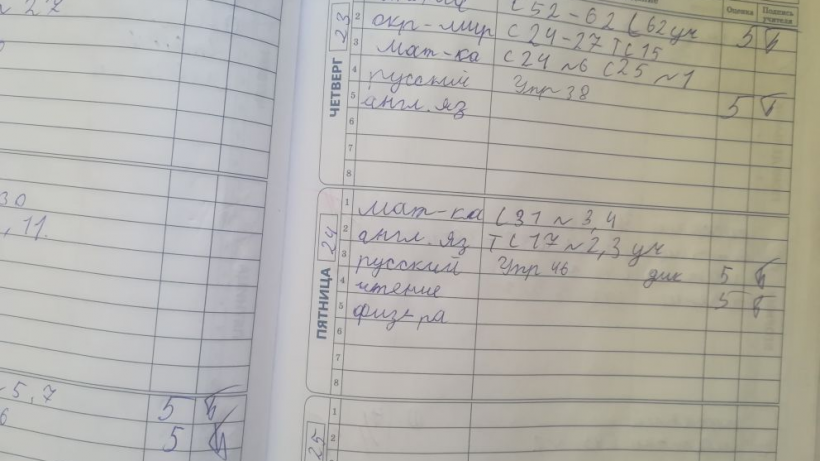 27
30
, 11.
5, 7
6
5
5
Оценка
Подпись учителя
ЧЕТВЕРГ 23
С 52 - 62 С 62 уч
2 окр-мир С 24-27 Т С 15 5
3 мат-ка С 24 №6 С 25 №1
4 русский Упр 38
5 англ. яз 5
6
7
8
ПЯТНИЦА 24
1 мат-ка С 31 № 3, 4
2 англ. яз Т С 17 № 2, 3 уч
3 русский Упр 46 дик 5
4 чтение 5
5 физ-ра
6
7
8
25
1
2
3